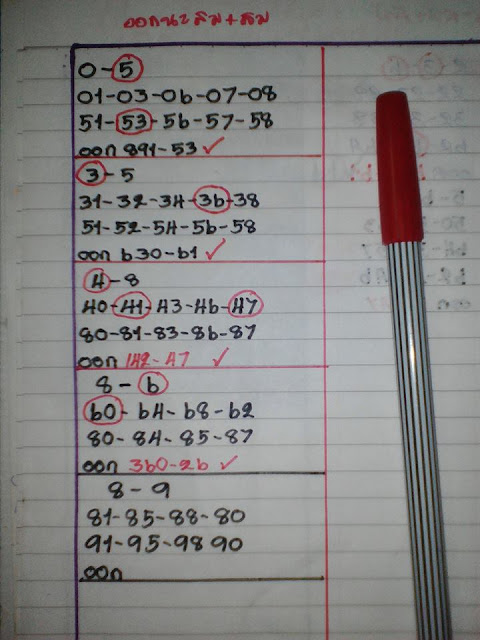 ออกนะ
0-5
01-03-06-07-08
51-53-56-57-58
ออก 891-53 ✓
3-5
31-32-34-36-38
51-52-54-56-58
ออก 630-61 ✓
4-8
40-41-43-46-47
80-81-83-86-87
ออก 142-47 ✓
8-6
60-64-68-62
80-84-85-87
ออก 360-26 ✓
8-9
81-85-88-80
91-95-98 90
ออก